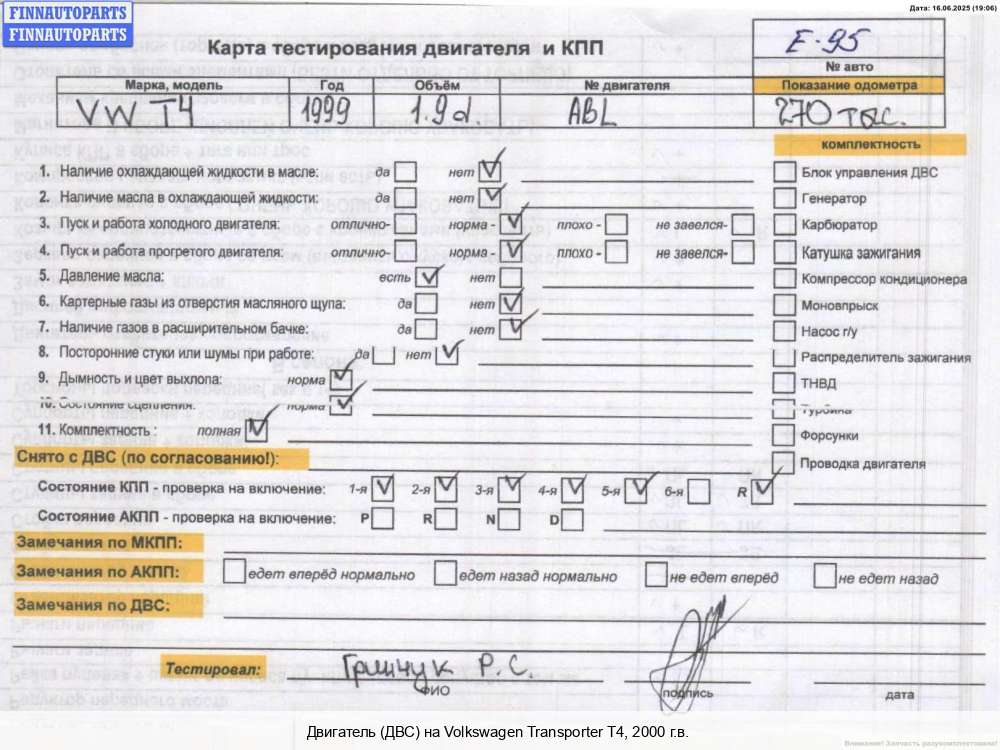 FINNAUTOPARTS
FINNAUTOPARTS
Дата: 16.06.2025 (19:06)
Карта тестирования двигателя и КПП
E-95
№ авто
Марка, модель Год Объём № двигателя Показание одометра
VW T4 1999 1.9d. ABL 270 тыс.
комплектность
1. Наличие охлаждающей жидкости в масле: да нет
Блок управления ДВС
2. Наличие масла в охлаждающей жидкости: да нет
Генератор
3. Пуск и работа холодного двигателя: отлично- норма - плохо - не завелся-
Карбюратор
4. Пуск и работа прогретого двигателя: отлично- норма - плохо - не завелся-
Катушка зажигания
5. Давление масла: есть нет
Компрессор кондиционера
6. Картерные газы из отверстия масляного щупа: да нет
Моновпрыск
7. Наличие газов в расширительном бачке: да нет
Насос г/у
8. Посторонние стуки или шумы при работе: да нет
Распределитель зажигания
9. Дымность и цвет выхлопа: норма
ТНВД
10. Состояние сцепления: норма
Турбина
11. Комплектность : полная
Форсунки
Снято с ДВС (по согласованию!):
Проводка двигателя
Состояние КПП - проверка на включение: 1-я 2-я 3-я 4-я 5-я 6-я R
Состояние АКПП - проверка на включение: P R N D
Замечания по МКПП:
Замечания по АКПП: едет вперёд нормально едет назад нормально не едет вперёд не едет назад
Замечания по ДВС:
Тестировал: Р. С.
ФИО подпись дата
Двигатель (ДВС) на Volkswagen Transporter T4, 2000 г.в.
Внимание! Запчасть разукомплектована!